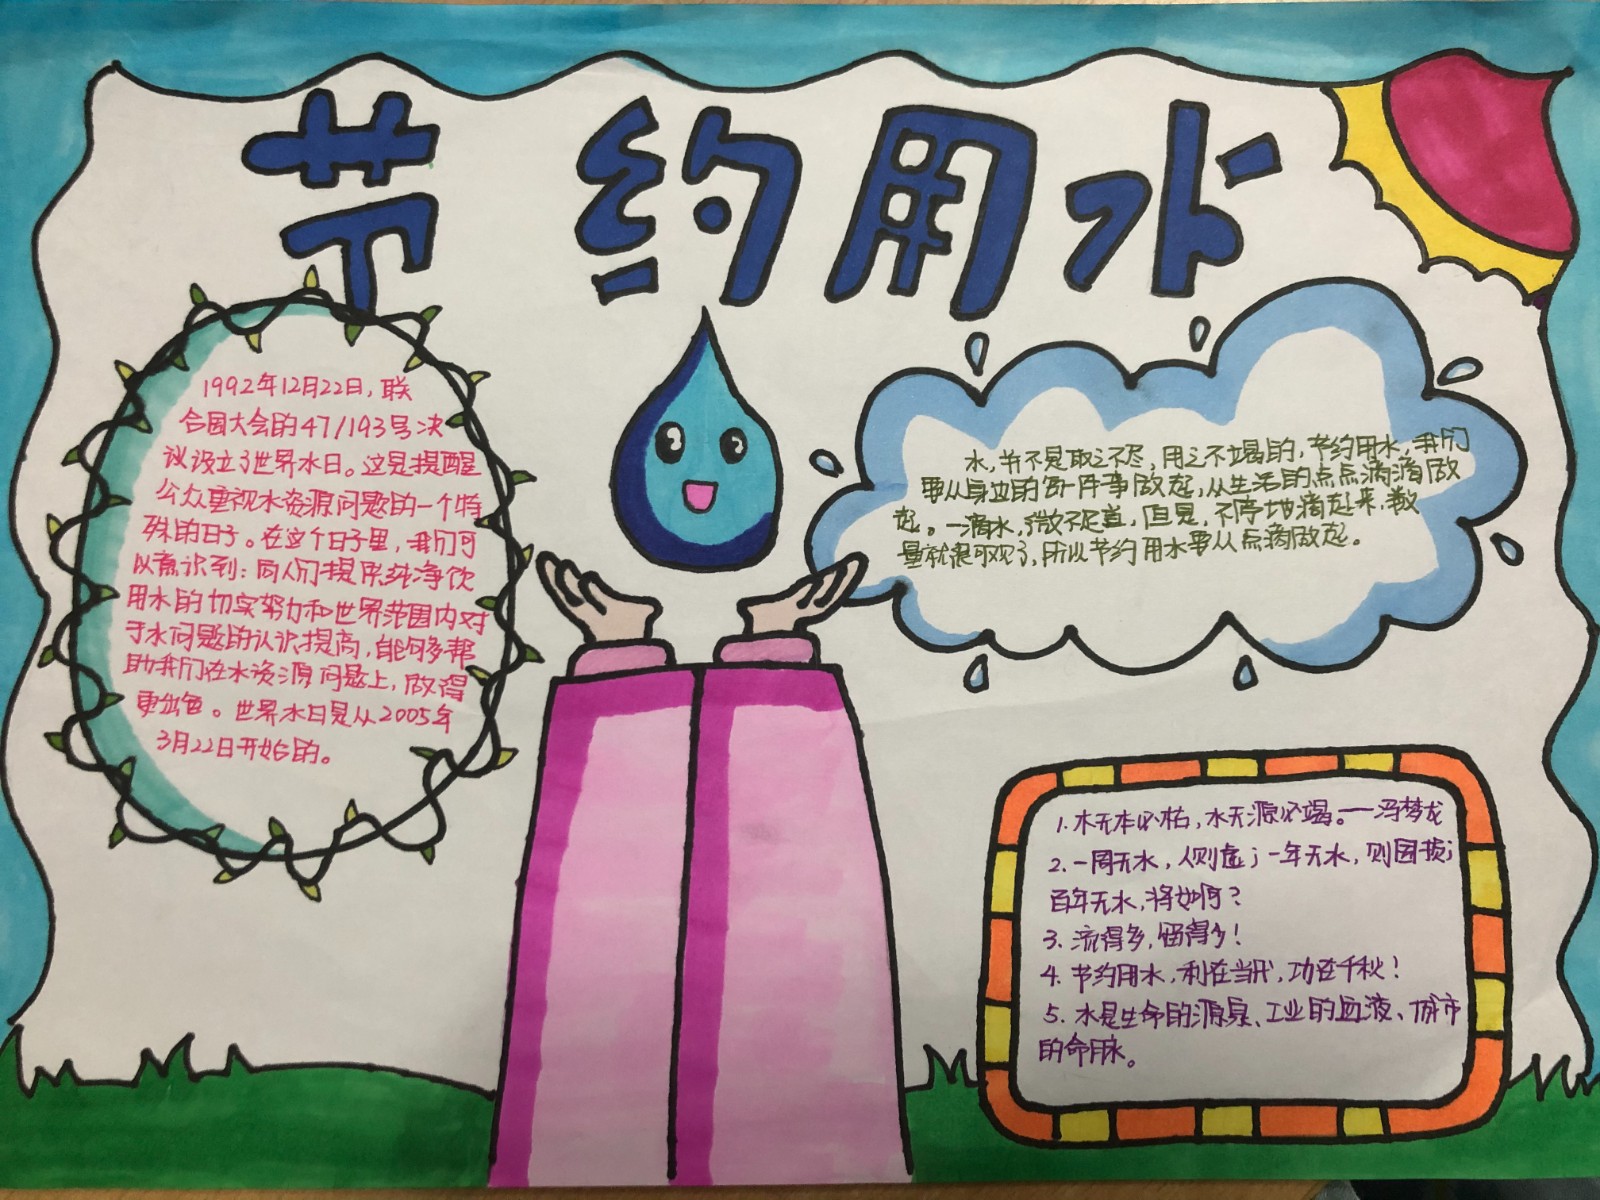 节约用水
1992年12月22日，联
合国大会的47/193号决
议设立了世界水日。这是提醒
公众重视水资源问题的一个特
殊的日子。在这个日子里，我们可
以意识到：向人们提供纯净饮
用水的切实努力和世界范围内对
于水问题的认识提高，能够多帮
助我们在水资源问题上，做得
更出色。世界水日是从2005年
3月22日开始的。
水，并不是取之不尽，用之不竭的，节约用水，我们
要从身边的每一件事做起，从生活的点点滴滴做
起。一滴水，微不足道，但是，不停地滴起来，数
量就很可观了，所以节约用水要从点滴做起。
1.木无本必枯，水无源必竭。——冯梦龙
2.一周无水，人则虚；一年无水，则国损；
百年无水，将如何？
3.流得多，留得少！
4.节约用水，利在当代，功在千秋！
5.水是生命的源泉、工业的血液、城市
的命脉。